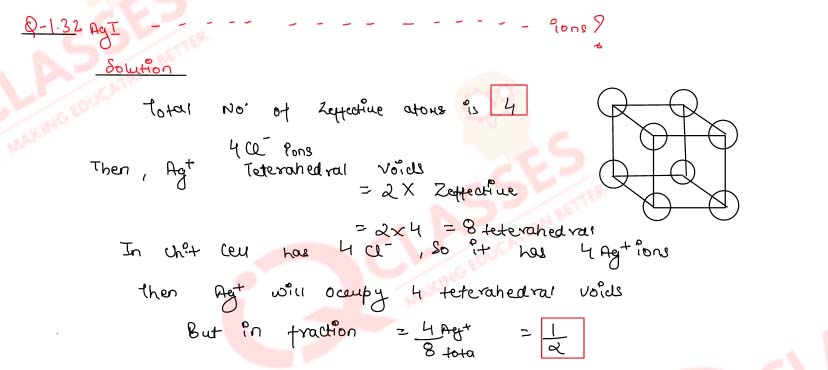 Q-1.32 AgI - - - - - - - - - - - - - - ions?
Solution
Total No. of Zeffective atoms is 4
4Cl⁻ ions
Then, Ag⁺ Teterahedral voids
= 2 × Zeffective
= 2×4 = 8 teterahedral
In Unit Cell has 4 Cl⁻, So it has 4 Ag⁺ ions
Then Ag⁺ will occupy 4 teterahedral voids
But in fraction = 4 Ag⁺ / 8 tota = 1/2
CLASSES
MAKING EDUCATION BETTER